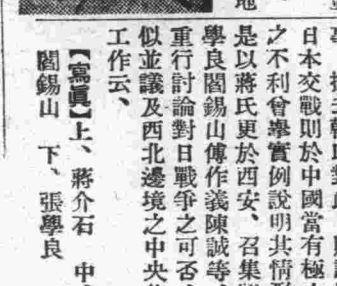 地
日本交戰則於中國當有極
之不利曾舉實例說明其情形
是以蔣氏更於西安、召集
學良閻錫山傅作義陳誠等
重行討論對日戰爭之可否
似並議及西北邊境之中央
工作云、
【寫眞】上、蔣介石　中、
閻錫山　下、張學良